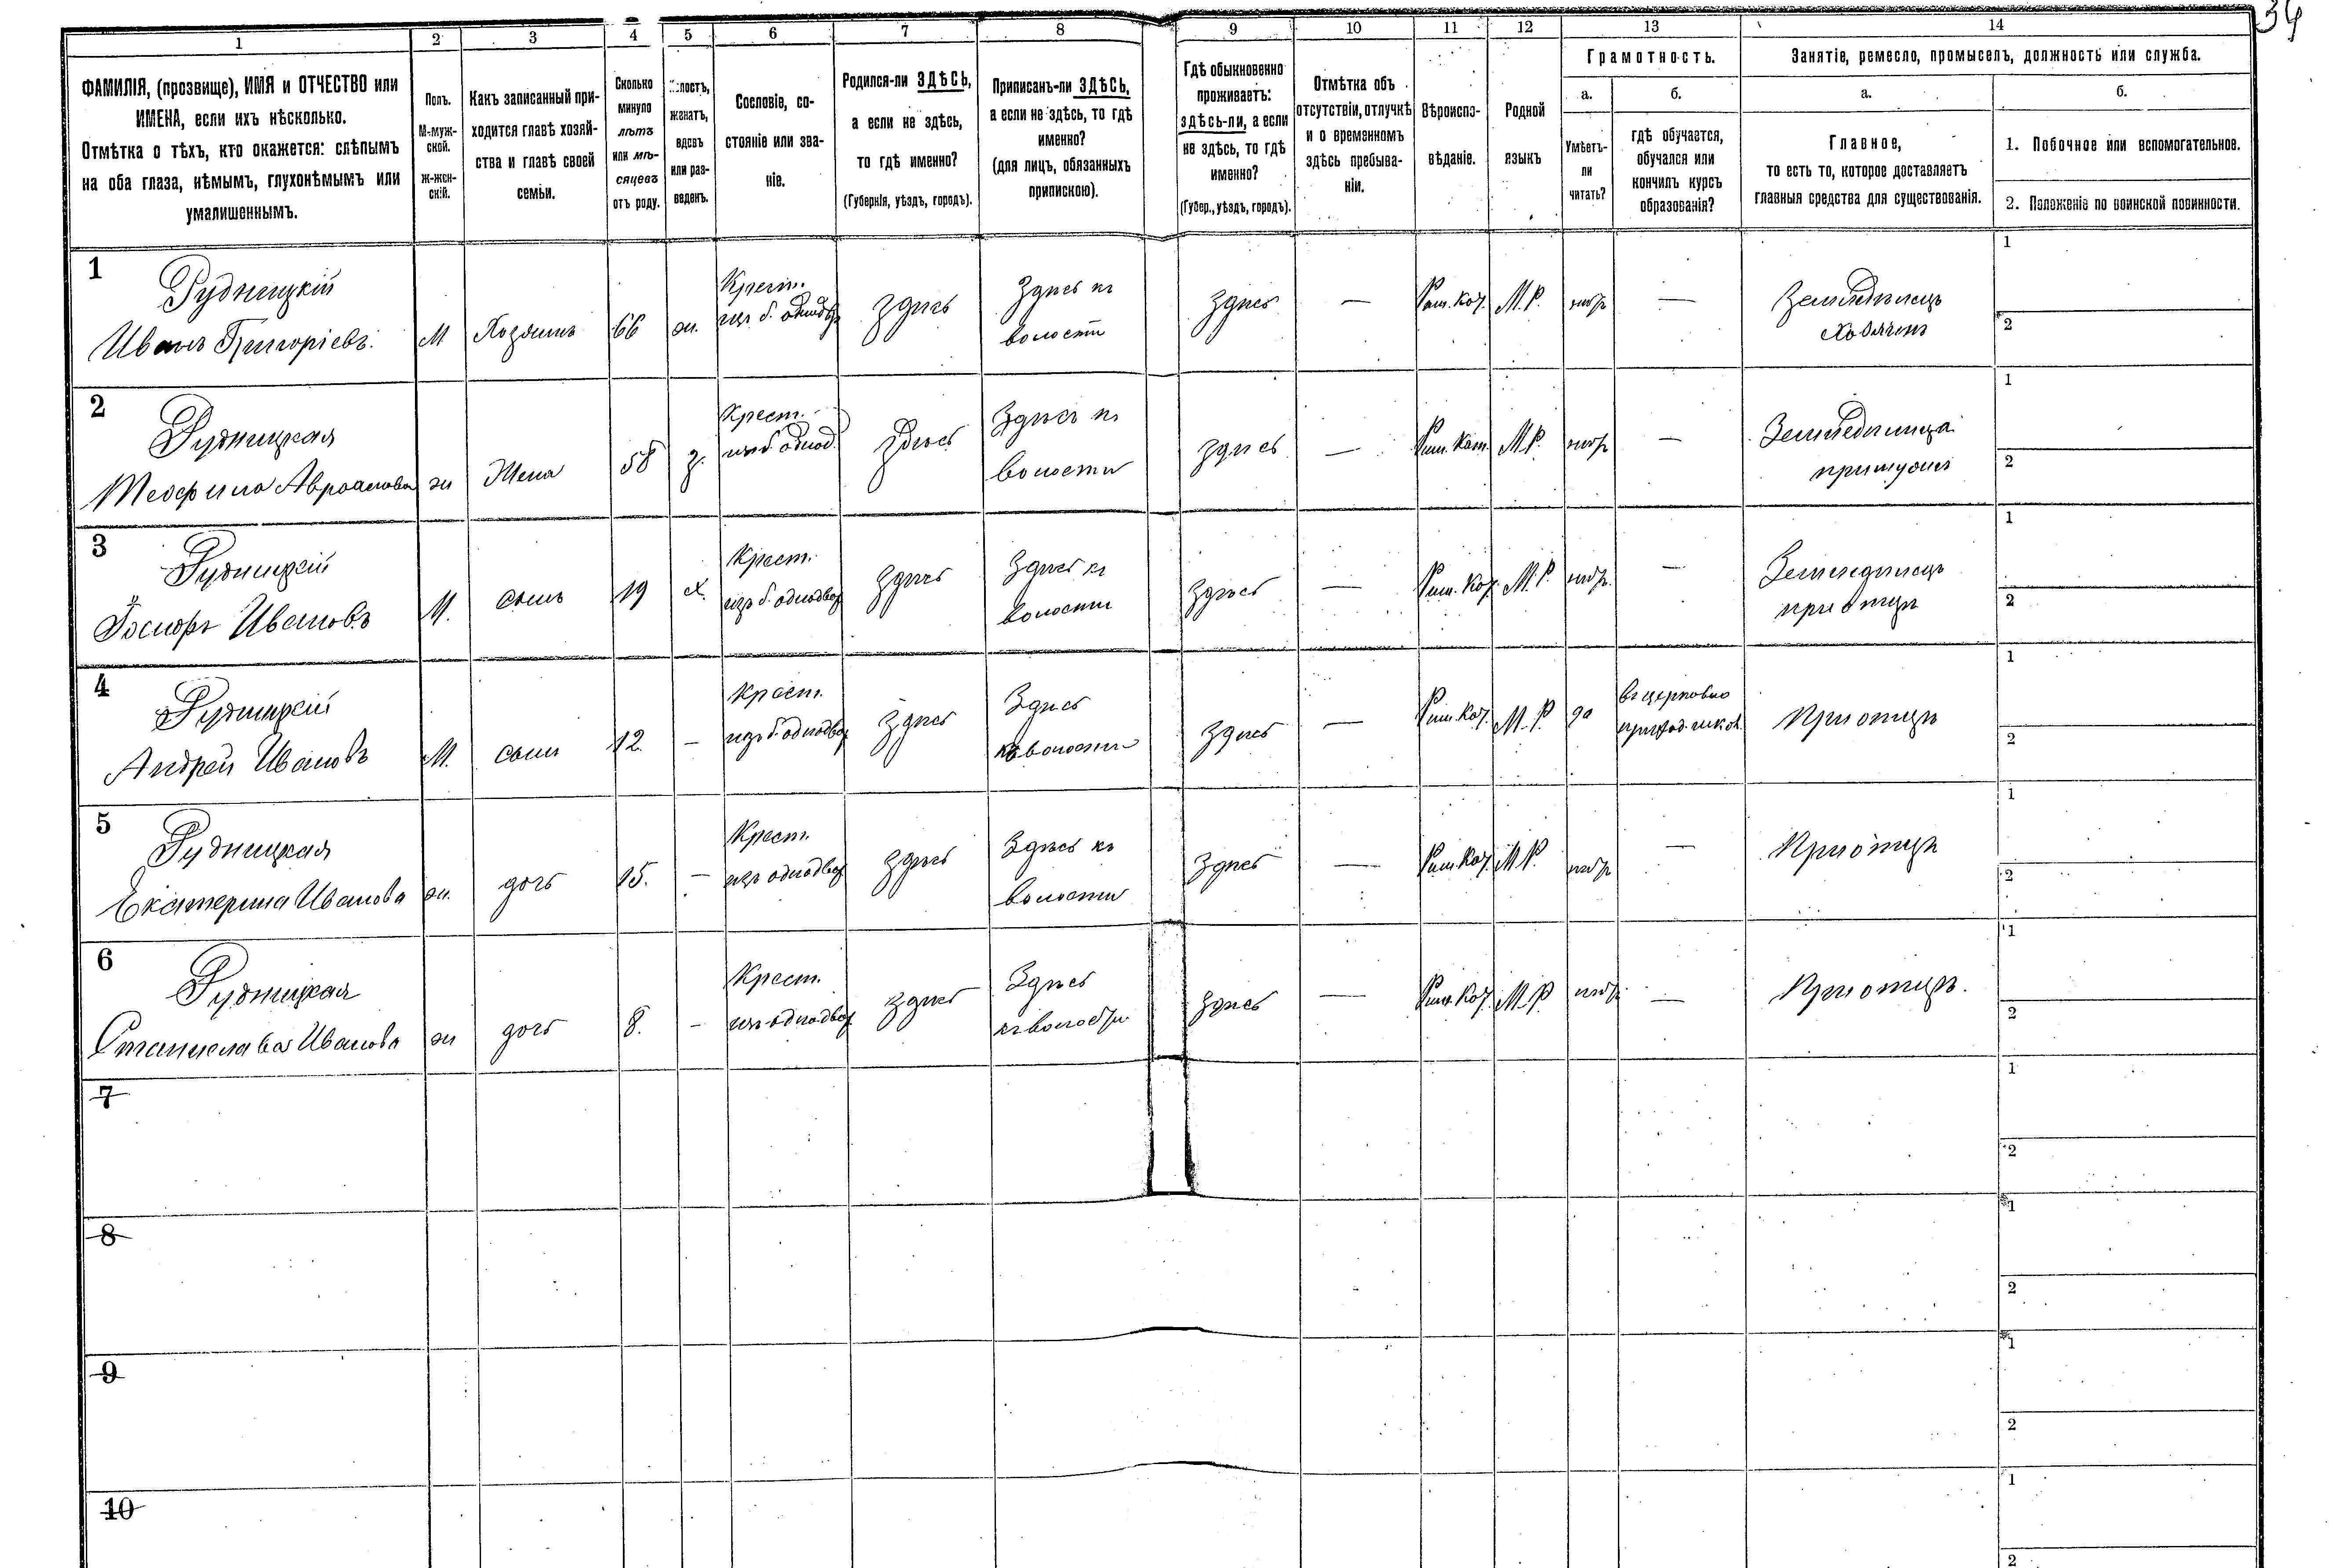 34
1 2 3 4 5 6 7 8 9 10 11 12 13 14
ФАМИЛІЯ, (прозвище), ИМЯ и ОТЧЕСТВО или
ИМЕНА, если ихъ нѣсколько.
Отмѣтка о тѣхъ, кто окажется: слѣпымъ
на оба глаза, нѣмымъ, глухонѣмымъ или
умалишеннымъ.
Полъ.
М-муж-
ской.
ж-жен-
скій.
Какъ записанный при-
ходится главѣ хозяй-
ства и главѣ своей
семьи.
Сколько
минуло
лѣтъ
или мѣ-
сяцевъ
отъ роду.
женатъ,
вдовъ
или раз-
веденъ.
Сословіе, со-
стояніе или зва-
ніе.
Родился-ли ЗДѢСЬ,
а если не здѣсь,
то гдѣ именно?
(Губернія, уѣздъ, городъ).
Приписанъ-ли ЗДѢСЬ,
а если не здѣсь, то гдѣ
именно?
(для лицъ, обязанныхъ
припискою).
Гдѣ обыкновенно
проживаетъ:
здѣсь-ли, а если
не здѣсь, то гдѣ
именно?
(Губер., уѣздъ, городъ).
Отмѣтка объ
отсутствіи, отлучкѣ
и о временномъ
здѣсь пребыва-
ніи.
Вѣроиспо-
вѣданіе.
Родной
языкъ
Грамотность.
а.
Умѣетъ-
ли
читать?
б.
гдѣ обучается,
обучался или
кончилъ курсъ
образованія?
Занятіе, ремесло, промыселъ, должность или служба.
а.
Главное,
то есть то, которое доставляетъ
главныя средства для существованія.
б.
1. Побочное или вспомогательное.
2. Положеніе по воинской повинности.
1
Рудницкій
Иванъ Григоріевъ.
М Хозяинъ 66 ж.
Крест.
изъ б. однодв.
здѣсь
Здѣсь къ
волости
здѣсь — Рим. Кат. М.Р. нѣтъ —
Земледѣлецъ
Хозяинъ
1
2
2
Рудницкая
Теофила Авраамова
ж Жена 58 з.
Крест.
изъ б. однод.
здѣсь
Здѣсь къ
волости
здѣсь — Рим. Кат. М.Р. нѣтъ —
Земледѣлица
при мужѣ
1
2
3
Рудницкій
Іосифъ Ивановъ
М. сынъ 19 х.
Крест.
изъ б. однодвор
здѣсь
Здѣсь къ
волости
здѣсь — Рим. Кат. М.Р. нѣтъ. —
Земледѣлецъ
при отцѣ
1
2
4
Рудницкій
Андрей Ивановъ
М. сынъ 12. —
Крест.
изъ б. однодвор
здѣсь
Здѣсь
къ волости
здѣсь — Рим. Кат. М.Р. да
въ церковно
приход. школ.
При отцѣ
1
2
5
Рудницкая
Екатерина Иванова
ж. дочь 15. —
Крест.
изъ однодвор
здѣсь
Здѣсь къ
волости
здѣсь — Рим. Кат. М.Р. нѣтъ —
При отцѣ
1
2
6
Рудницкая
Станислава Иванова
ж дочь 8. —
Крест.
изъ однодвор.
здѣсь
Здѣсь
къ волости
здѣсь — Рим. Кат. М.Р. нѣтъ —
При отцѣ.
1
2
7
1
2
8
1
2
9
1
2
10
1
2